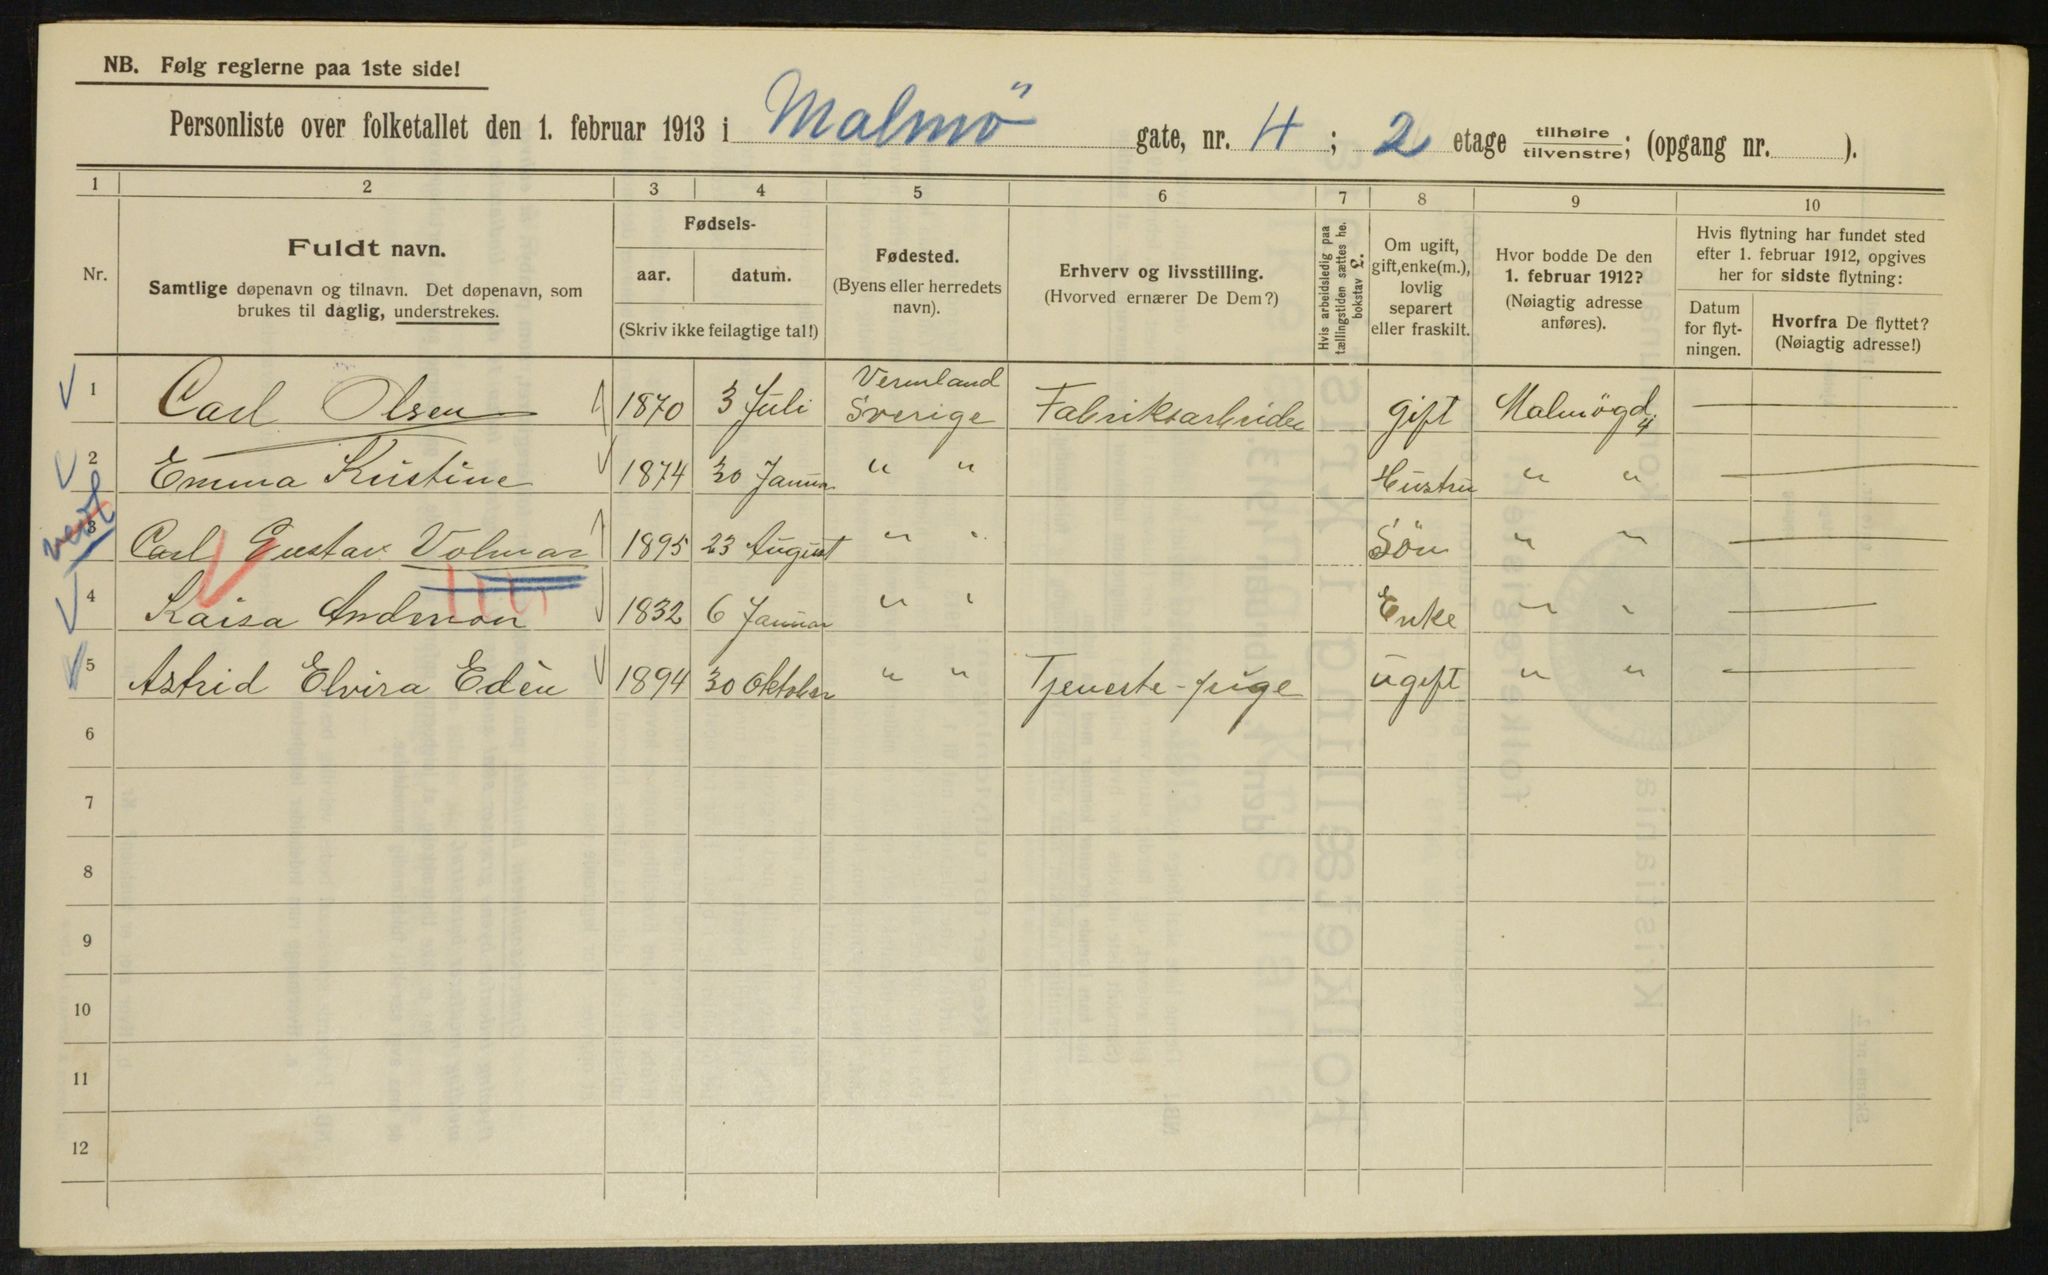 NB. Følg reglerne paa 1ste side!
Personliste over folketallet den 1. februar 1913 i Malmö gate, nr. 4; 2 etage tilhøire/tilvenstre; (opgang nr. ).
1 2 3 4 5 6 7 8 9 10
Nr.
Fuldt navn.
Samtlige døpenavn og tilnavn. Det døpenavn, som
brukes til daglig, understrekes.
Fødsels-
aar. datum.
(Skriv ikke feilagtige tal!)
Fødested.
(Byens eller herredets
navn).
Erhverv og livsstilling.
(Hvorved ernærer De Dem?)
Hvis arbeidsledig paa
tællingstiden sættes he.
bokstav L.
Om ugift,
gift, enke(m.),
lovlig
separert
eller fraskilt.
Hvor bodde De den
1. februar 1912?
(Nøiagtig adresse
anføres).
Hvis flytning har fundet sted
efter 1. februar 1912, opgives
her for sidste flytning:
Datum
for flyt-
ningen.
Hvorfra De flyttet?
(Nøiagtig adresse!)
1 Carl Olsen 1870 3 Juli Vermland Sverige Fabriksarbeider gift Malmögd. 4
2 Emma Kristine 1874 30 Januar " " Hustru " "
3 Carl Gustav Volmar 1895 23 August " " Sön " "
4 Kaisa Anderson 1832 6 Januar " " Enke " "
5 Astrid Elvira Edèn 1894 30 Oktober " " Tjeneste-pige ugift " "
6
7
8
9
10
11
12